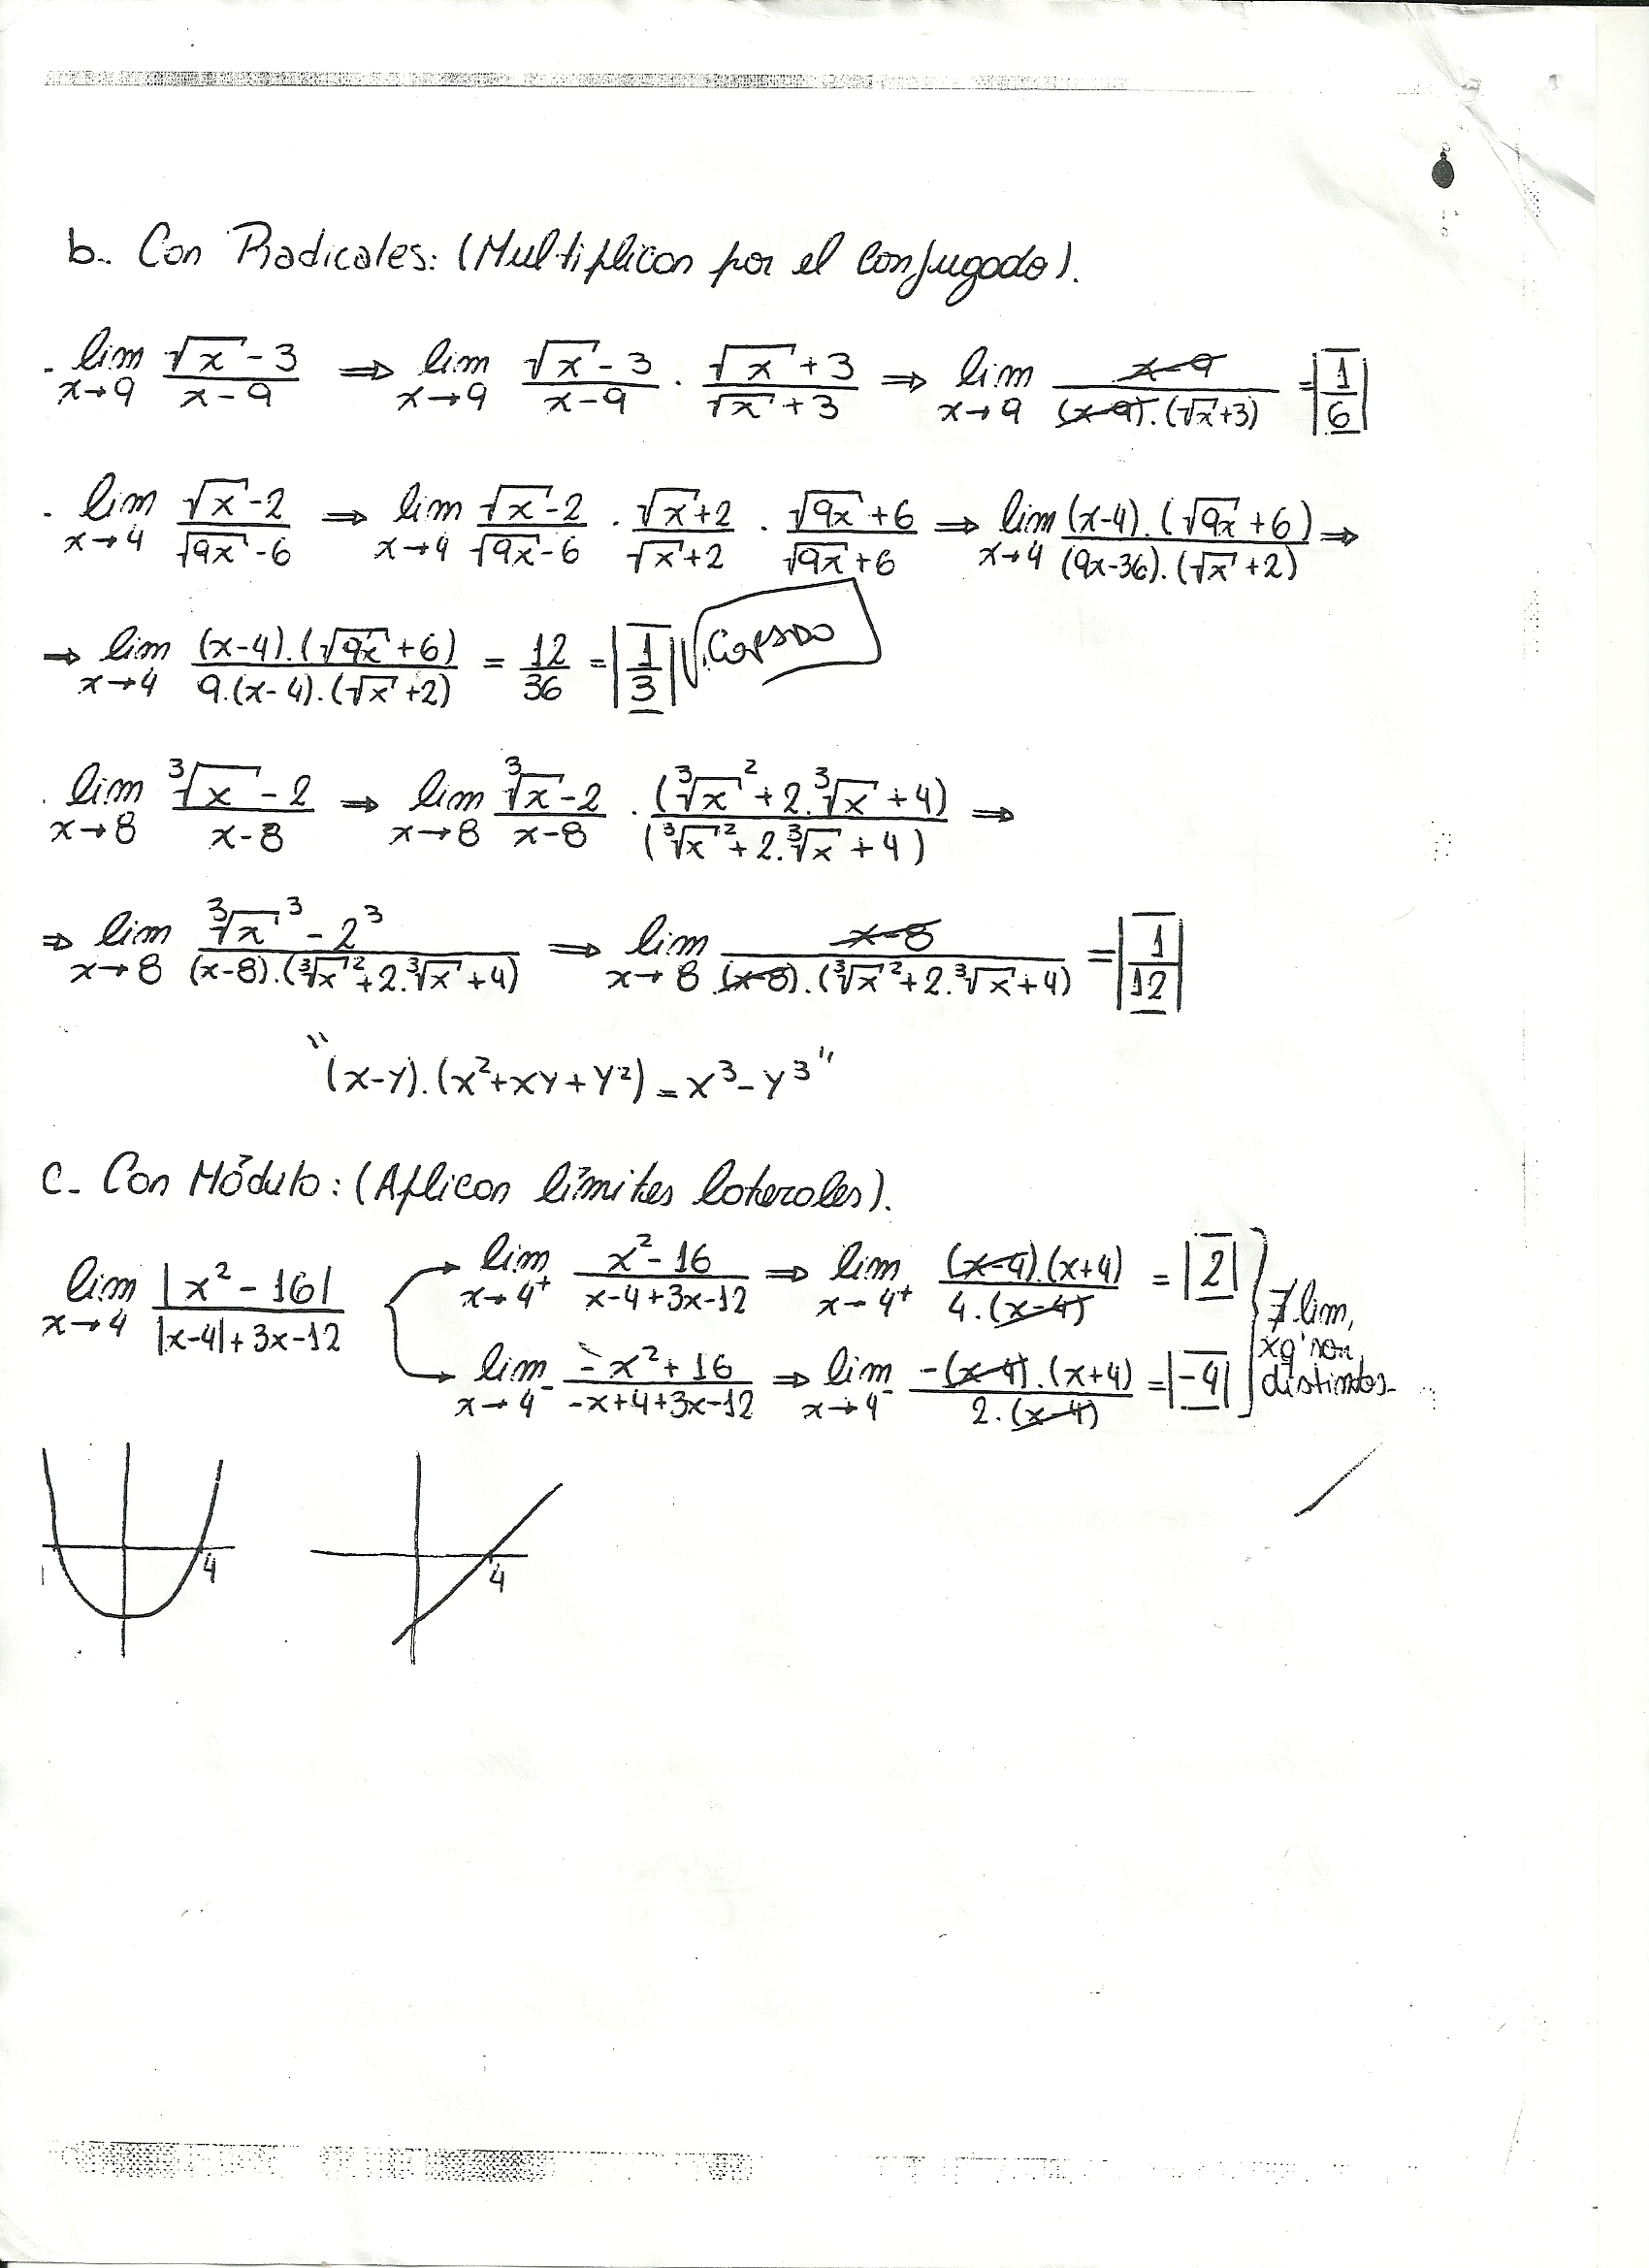 b.. Con Radicales: (Multiplicar por el Conjugado).
. lim x→9 (√x - 3)/(x-9) ⇒ lim x→9 (√x - 3)/(x-9) . (√x + 3)/(√x + 3) ⇒ lim x→9 (x-9)/((x-9).(√x+3)) = |1/6|
. lim x→4 (√x - 2)/(√9x - 6) ⇒ lim x→4 (√x - 2)/(√9x - 6) . (√x + 2)/(√x + 2) . (√9x + 6)/(√9x + 6) ⇒ lim x→4 ((x-4).(√9x + 6))/((9x-36).(√x + 2)) ⇒
⇒ lim x→4 ((x-4).(√9x + 6))/(9.(x-4).(√x + 2)) = 12/36 = |1/3|
. lim x→8 (∛x - 2)/(x-8) ⇒ lim x→8 (∛x - 2)/(x-8) . (∛x² + 2.∛x + 4)/(∛x² + 2.∛x + 4) ⇒
⇒ lim x→8 (∛x³ - 2³)/((x-8).(∛x² + 2.∛x + 4)) ⇒ lim x→8 (x-8)/((x-8).(∛x² + 2.∛x + 4)) = |1/12|
"(x-y).(x²+xy+y²) = x³-y³"
c- Con Módulo: (Aplicar límites laterales).
lim x→4 |x² - 16|/(|x-4| + 3x-12)
lim x→4⁺ (x² - 16)/(x-4+3x-12) ⇒ lim x→4⁺ ((x-4).(x+4))/(4.(x-4)) = |2|
lim x→4⁻ (-x² + 16)/(-x+4+3x-12) ⇒ lim x→4⁻ (-(x-4).(x+4))/(2.(x-4)) = |-4|
∄ lim,
xq' son
distintos-
4
4